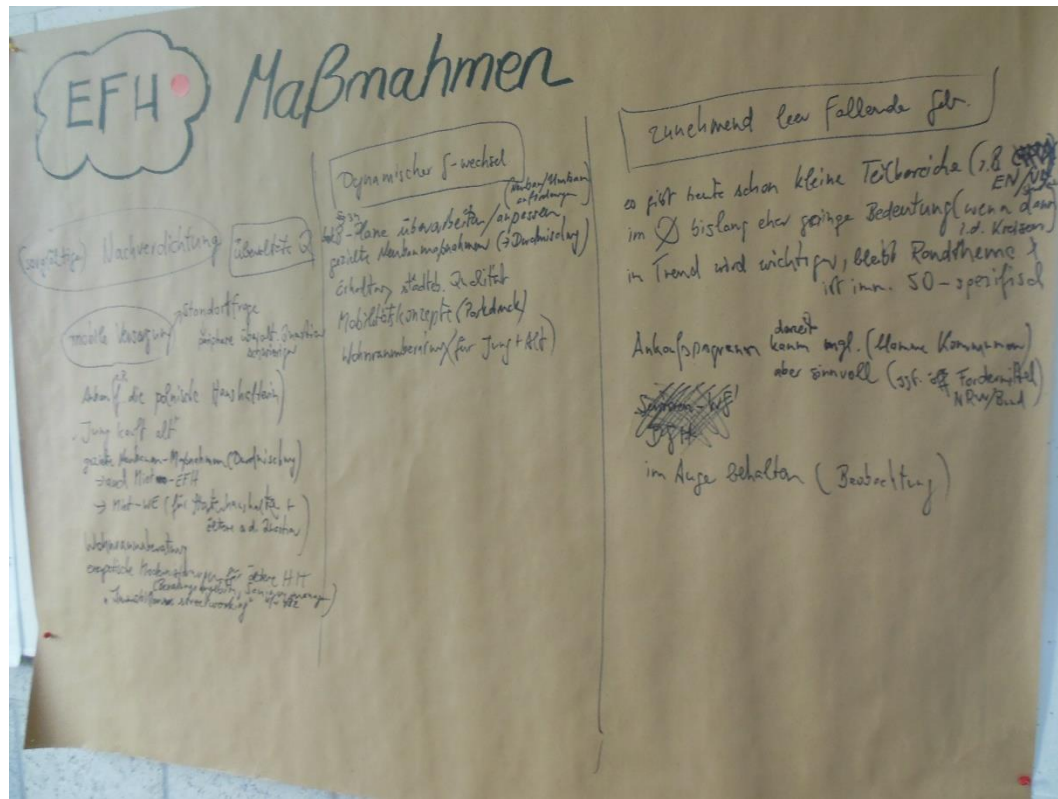 EFH
Maßnahmen
(sorgfältige) Nachverdichtung
überaltete Q
mobile Versorgung
Standortfrage
Ankauf
die polnische Haushälterin
"Jung kauft alt"
gezielte Neubau-Maßnahmen (Durchmischung)
→ auch Miet-EFH
→ Miet-WE (für
ältere a.d. Quartier
Wohnraumberatung
energetische Modernisierungen für ältere HH
(Beratungsangebote,
Dynamischer G-wechsel
(Neubau/Umbau
anforderungen)
B-Pläne überarbeiten/anpassen
gezielte Neubaumaßnahmen (→ Durchmischung)
Erhaltung städtb. Qualität
Mobilitätskonzepte (Parkdruck)
Wohnraumberatung (für Jung + Alt)
zunehmend leer fallende Geb.
es gibt heute schon kleine Teilbereiche (z.B.
EN/
im Ø bislang eher geringe Bedeutung (wenn dann
i.d. Kreisen)
im Trend wird wichtiger, bleibt Randthema &
ist imm. SO-spezifisch
Ankaufsprogramm derzeit
kaum mgl. (klamme Kommunen)
aber sinnvoll (ggf. öff. Fördermittel
NRW/Bund)
im Auge behalten (Beobachtung)